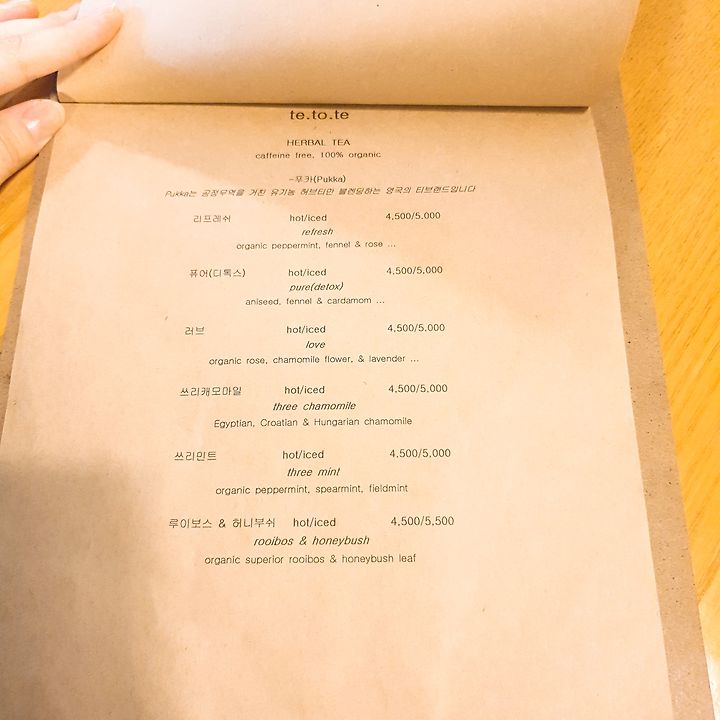 te.to.te
HERBAL TEA
caffeine free, 100% organic
-푸카(Pukka)
Pukka는 공정무역을 거친 유기농 허브티만 블렌딩하는 영국의 티브랜드입니다
리프레쉬 hot/iced 4,500/5,000
refresh
organic peppermint, fennel & rose ...
퓨어(디톡스) hot/iced 4,500/5,000
pure(detox)
aniseed, fennel & cardamom ...
러브 hot/iced 4,500/5,000
love
organic rose, chamomile flower, & lavender ...
쓰리캐모마일 hot/iced 4,500/5,000
three chamomile
Egyptian, Croatian & Hungarian chamomile
쓰리민트 hot/iced 4,500/5,000
three mint
organic peppermint, spearmint, fieldmint
루이보스 & 허니부쉬 hot/iced 4,500/5,500
rooibos & honeybush
organic superior rooibos & honeybush leaf